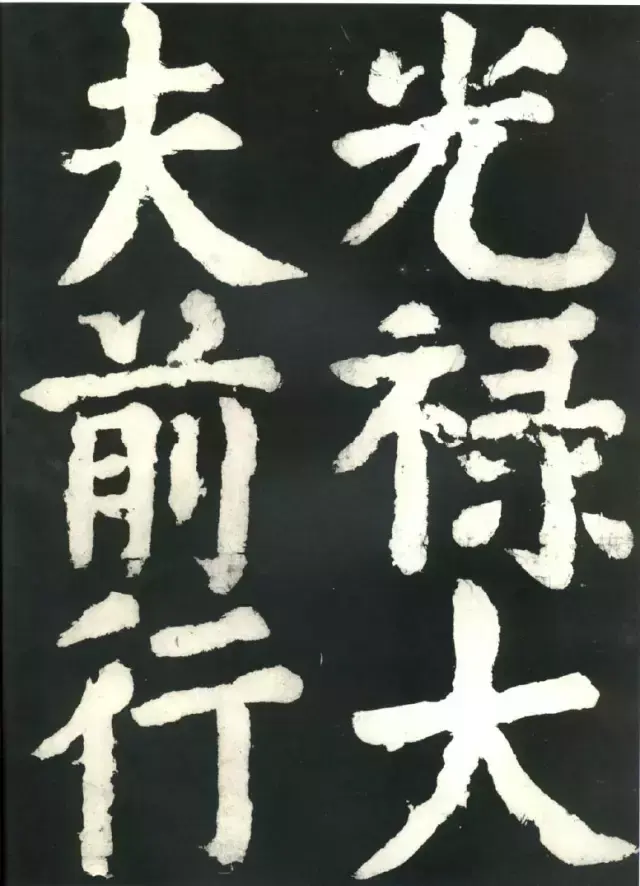 光禄大
夫前行